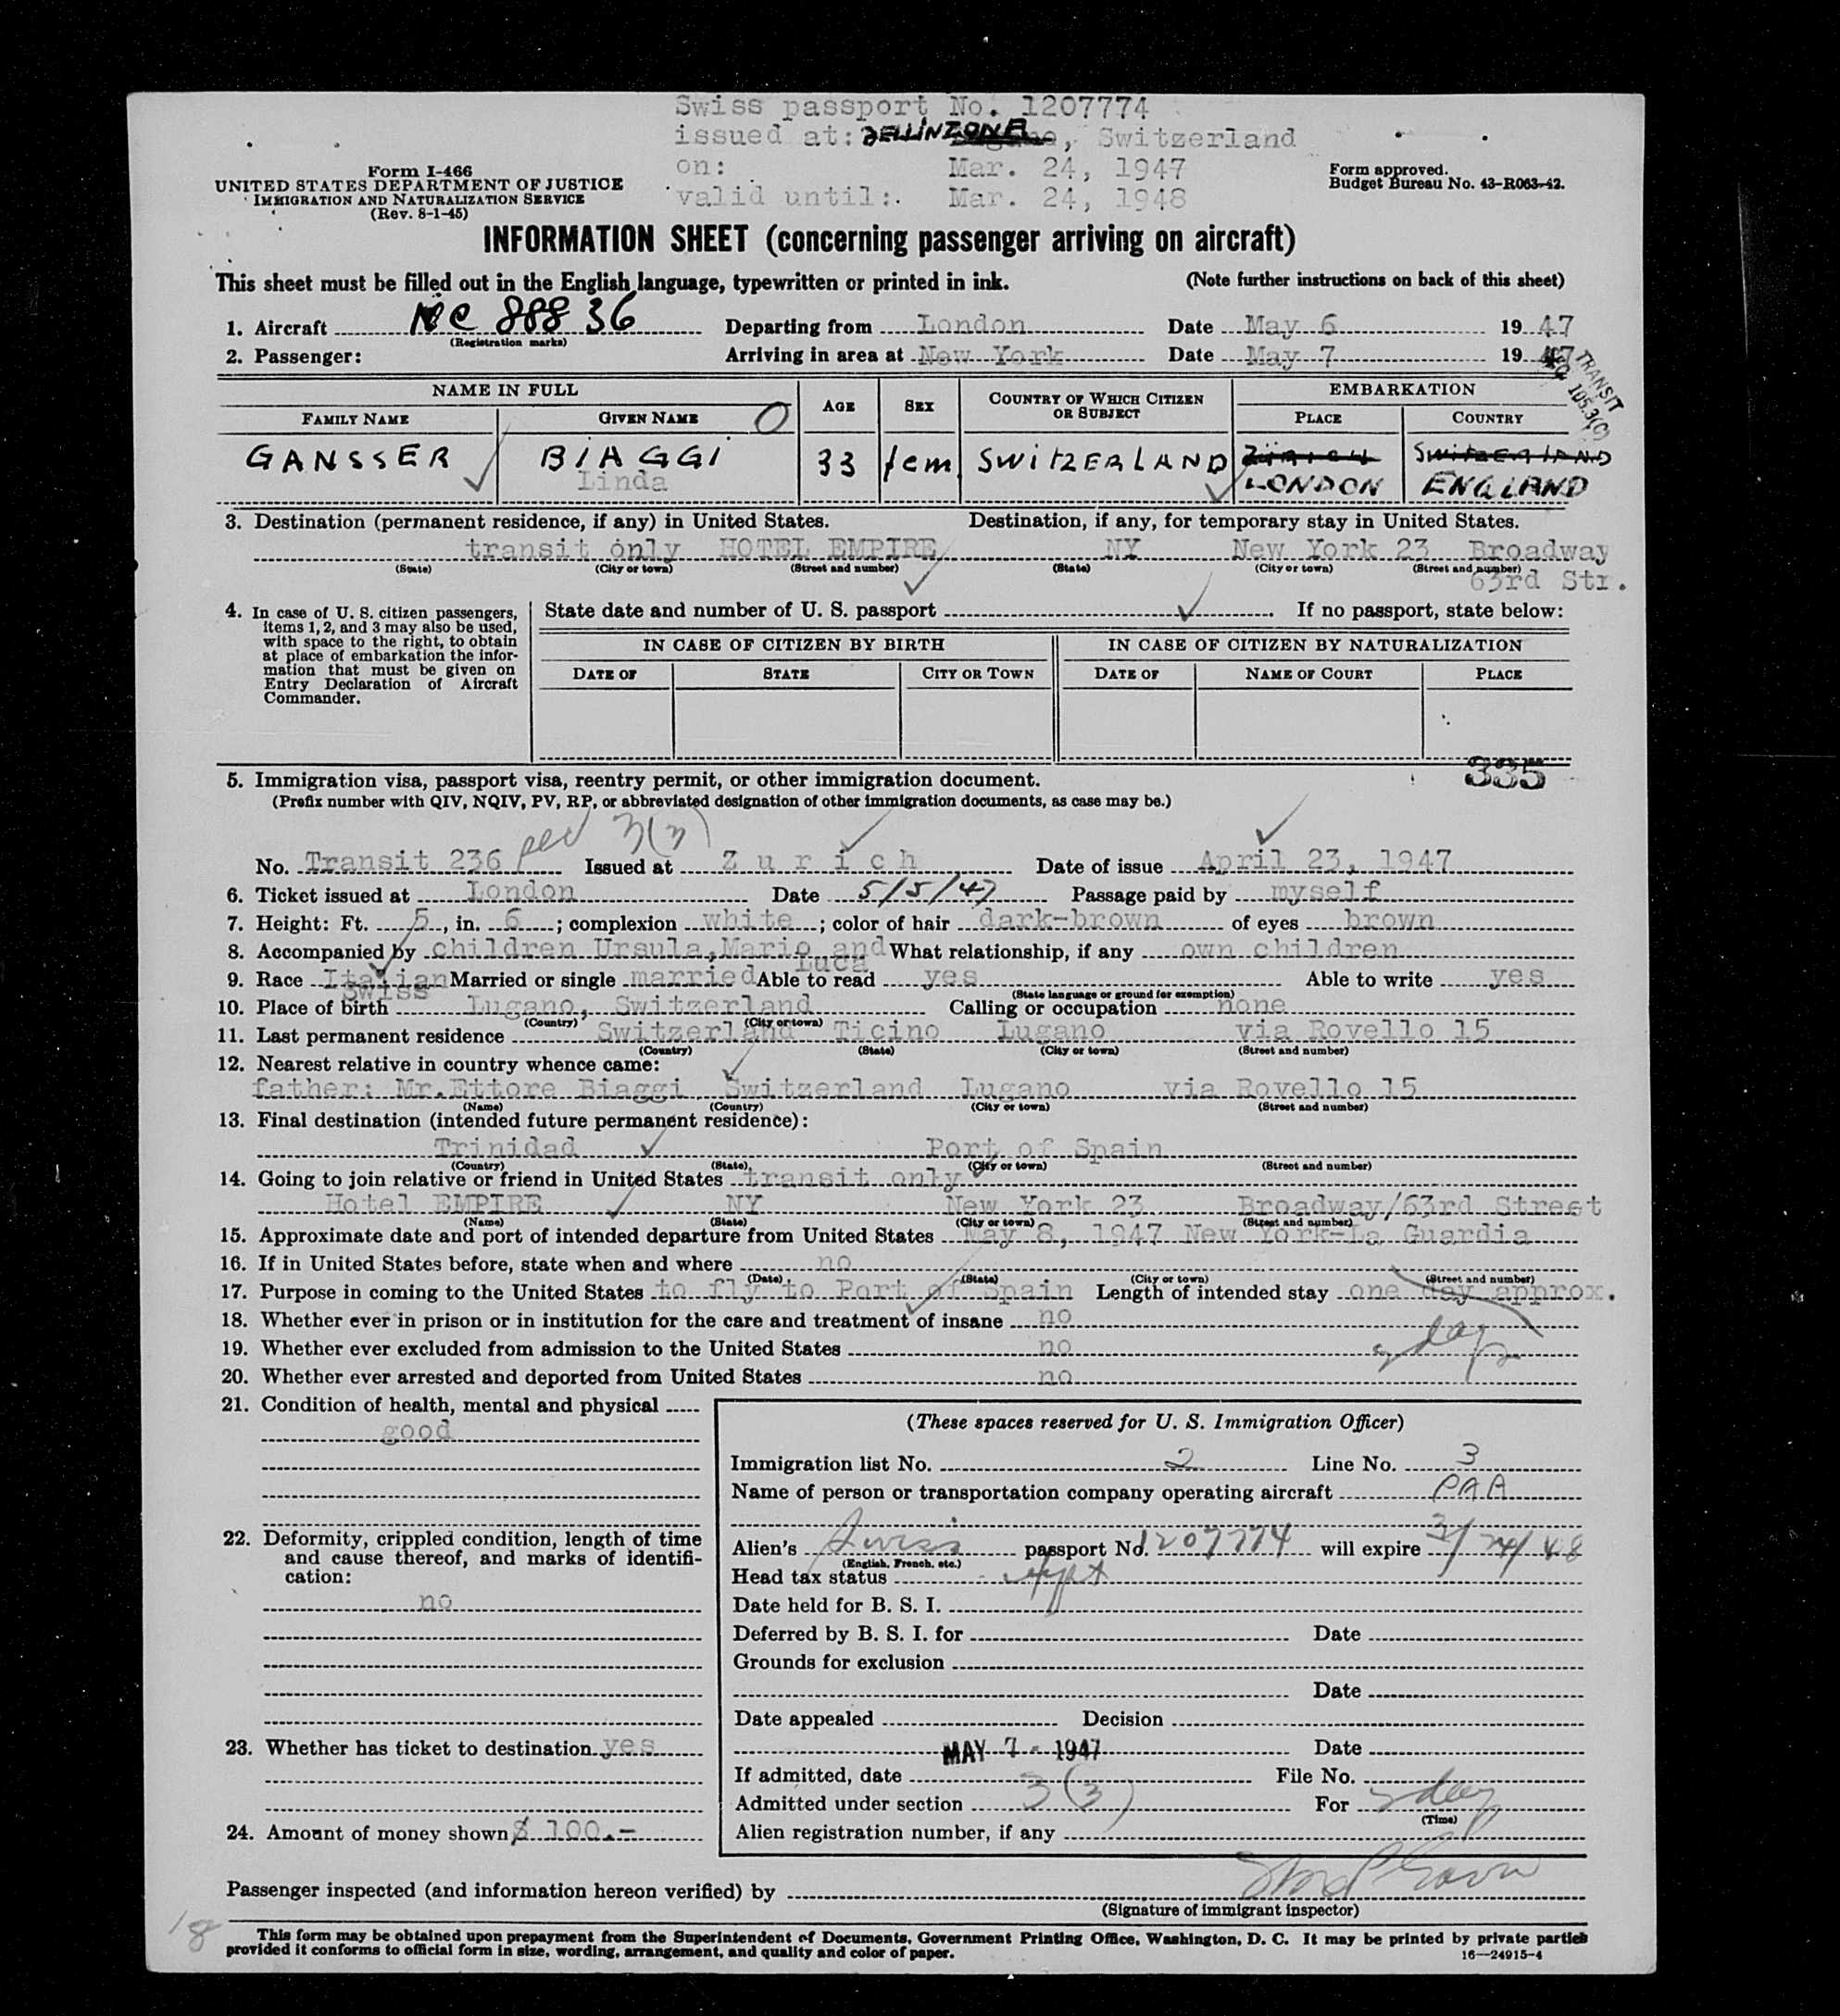 Swiss passport No. 1207774
issued at: BELLINZONA, Switzerland
on: Mar. 24, 1947
valid until: Mar. 24, 1948
Form I-466
UNITED STATES DEPARTMENT OF JUSTICE
IMMIGRATION AND NATURALIZATION SERVICE
(Rev. 8-1-45)
Form approved.
Budget Bureau No. 43-R063-42.
INFORMATION SHEET (concerning passenger arriving on aircraft)
This sheet must be filled out in the English language, typewritten or printed in ink. (Note further instructions on back of this sheet)
1. Aircraft NC 88836 Departing from London Date May 6 19 47
(Registration marks)
2. Passenger: Arriving in area at New York Date May 7 19 47
TRANSIT
105.3(C)
NAME IN FULL AGE SEX COUNTRY OF WHICH CITIZEN OR SUBJECT EMBARKATION
FAMILY NAME GIVEN NAME PLACE COUNTRY
GANSSER BIAGGI 33 fem SWITZERLAND ZÜRICH SWITZERLAND
Linda LONDON ENGLAND
3. Destination (permanent residence, if any) in United States. Destination, if any, for temporary stay in United States.
transit only HOTEL EMPIRE NY New York 23 Broadway
(State) (City or town) (Street and number) (State) (City or town) (Street and number)
63rd Str.
4. In case of U. S. citizen passengers, items 1, 2, and 3 may also be used, with space to the right, to obtain at place of embarkation the information that must be given on Entry Declaration of Aircraft Commander.
State date and number of U. S. passport If no passport, state below:
IN CASE OF CITIZEN BY BIRTH IN CASE OF CITIZEN BY NATURALIZATION
DATE OF STATE CITY OR TOWN DATE OF NAME OF COURT PLACE
335
5. Immigration visa, passport visa, reentry permit, or other immigration document.
(Prefix number with QIV, NQIV, PV, RP, or abbreviated designation of other immigration documents, as case may be.)
3(3)
No. Transit 236 Issued at Zurich Date of issue April 23, 1947
6. Ticket issued at London Date 5/5/47 Passage paid by myself
7. Height: Ft. 5, in. 6; complexion white; color of hair dark-brown of eyes brown
8. Accompanied by children Ursula, Mario and What relationship, if any own children
Luca
9. Race Italian Married or single married Able to read yes Able to write yes
Swiss (State language or ground for exemption)
10. Place of birth Lugano, Switzerland Calling or occupation none
(Country) (City or town)
11. Last permanent residence Switzerland Ticino Lugano via Rovello 15
(Country) (State) (City or town) (Street and number)
12. Nearest relative in country whence came:
father: Mr.Ettore Biaggi Switzerland Lugano via Rovello 15
(Name) (Country) (City or town) (Street and number)
13. Final destination (intended future permanent residence):
Trinidad Port of Spain
(Country) (State) (City or town) (Street and number)
14. Going to join relative or friend in United States transit only
Hotel EMPIRE NY New York 23 Broadway/63rd Street
(Name) (State) (City or town) (Street and number)
15. Approximate date and port of intended departure from United States May 8, 1947 New York-La Guardia
16. If in United States before, state when and where no
(Date) (State) (City or town) (Street and number)
17. Purpose in coming to the United States to fly to Port of Spain Length of intended stay one day approx.
18. Whether ever in prison or in institution for the care and treatment of insane no
19. Whether ever excluded from admission to the United States no
20. Whether ever arrested and deported from United States no
21. Condition of health, mental and physical
good
22. Deformity, crippled condition, length of time and cause thereof, and marks of identification:
no
23. Whether has ticket to destination yes
24. Amount of money shown $ 100.-
(These spaces reserved for U. S. Immigration Officer)
Immigration list No. 2 Line No. 3
Name of person or transportation company operating aircraft PAA
Alien's Swiss passport No. 1207774 will expire 3/24/48
(English, French, etc.)
Head tax status
Date held for B. S. I.
Deferred by B. S. I. for Date
Grounds for exclusion
Date
Date appealed Decision
MAY 7 - 1947 Date
If admitted, date File No.
Admitted under section 3(3) For days
(Time)
Alien registration number, if any
Passenger inspected (and information hereon verified) by
(Signature of immigrant inspector)
18
This form may be obtained upon prepayment from the Superintendent of Documents, Government Printing Office, Washington, D. C. It may be printed by private parties
provided it conforms to official form in size, wording, arrangement, and quality and color of paper. 16—24915-4